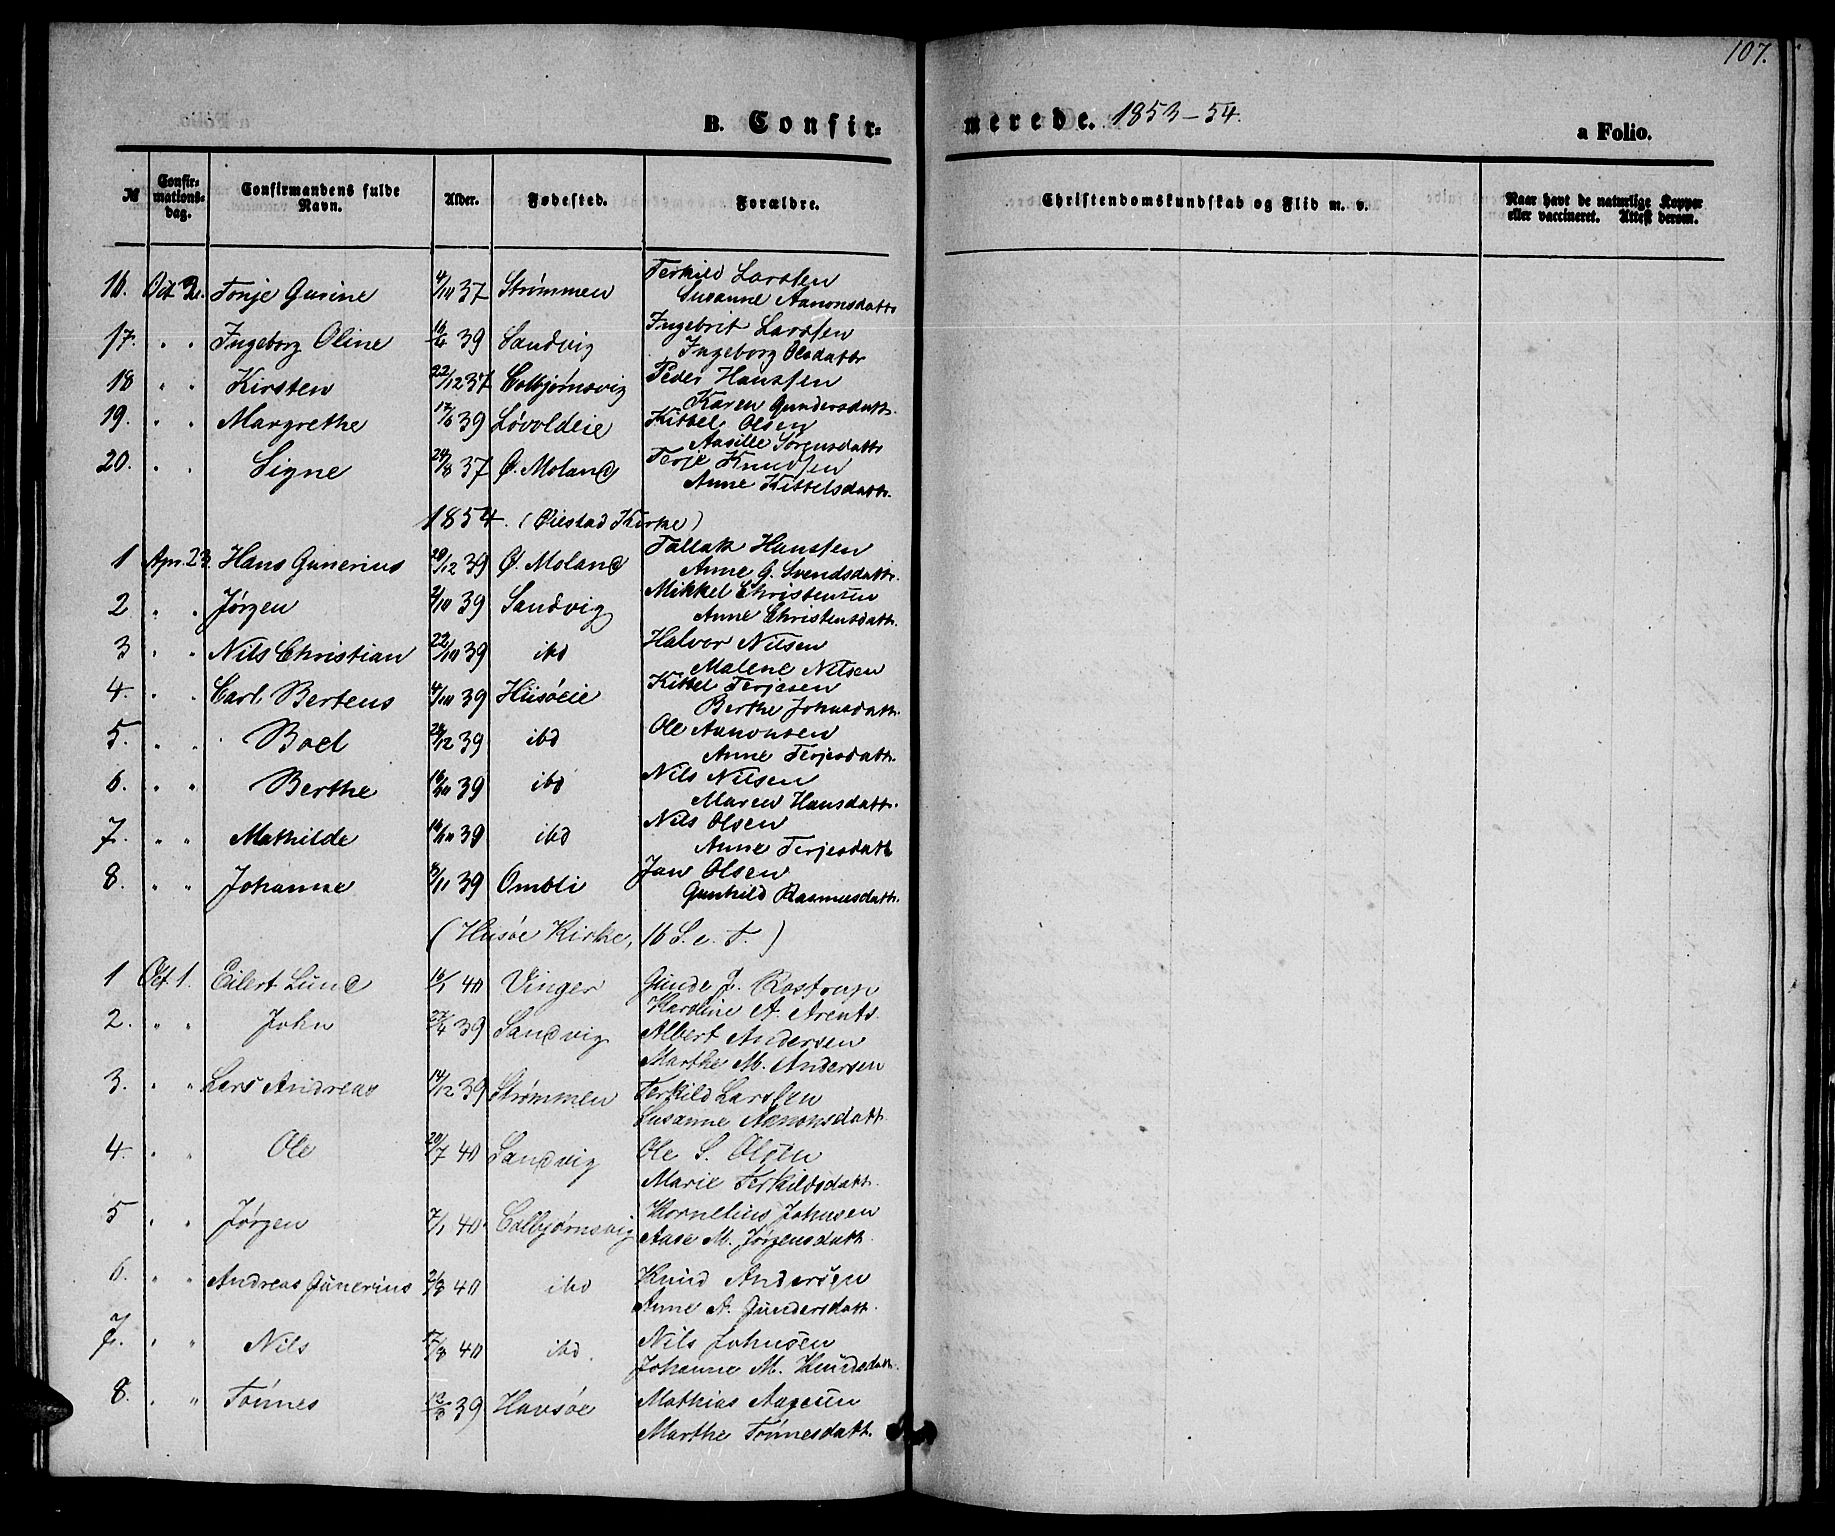 107.
B. Confir=
merede. 1853-54.
a Folio.
№
Confir-
mations-
dag.
Confirmandens fulde
Navn.
Alder.
Fødested.
Forældre.
Christendomskundskab og Flid m. v.
Naar havt de naturlige Kopper
eller vaccineret. Attest derom.
16. Oct 2. Tonje Gurine 4/10 37 Strømmen Terkild Larssen
Susanne Aanonsdattr
17. " " Ingeborg Oline 16/4 39 Sandvig Ingebrit Larssen
Ingeborg Olsdattr
18 " " Kirsten 22/12 37 Colbjørnsvig Peder Hanssen
Karen Gundersdattr.
19. " " Margrethe 39 Løvoldeie Kittel Olsen
Aasille Sørensdattr
20. " " Signe 24/8 37 Ø. Moland Terje Knudsen
Anne Kittelsdattr.
1854. (Øiestad Kirke)
1 Apr. 23. Hans Gunerius 20/12 39 Ø. Moland Tallak Hanssen
Anne G. Svendsdattr.
2 " " Jørgen 2/10 39 Sandvig Mikkel Christensen
Anne Christensdattr.
3 " " Nils Christian 22/10 39 ibd Halvor Nilsen
Malene Nilsen
4. " " Carl Bertens 4/10 39 Hisøeie Kittel Terjesen
Berthe Johnsdattr.
5. " " Boel 39 ibd Ole Aanonsen
Anne Terjesdattr.
6. " " Berthe 39 ibd Nils Nilsen
Maren Hansdattr.
7. " " Mathilde 16/10 39 ibd Nils Olsen
Anne Terjesdattr
8. " " Johanne 8/11 39 Ombli Jan Olsen
Gunhild Rasmusdattr.
(Hisøe Kirke, 16 S. e. T.)
1 Oct 1. Eilert Lund 16/1 40 Vinger Gunde J. Rostrup
Karoline A. Arents.
2. " " John 27/4 39 Sandvig Albert Andersen
Marthe M. Andersen
3. " " Lars Andreas 14/12 39 Strømmen Terkild Larssen
Susanne Aanonsdatt.
4. " " Ole 20/7 40 Sandvig Ole S. Olsen
Marie Terkildsdatt.
5 " " Jørgen 7/1 40. Colbjørnsvig Kornelius Johnsen
Aase M. Jørgensdatt.
6. " " Andreas Gunerius 2/8 40 ibd Knud Andersen
Anne A. Gundersdatt.
7. " " Nils 17/8 40 ibd. Nils Johnsen
Johanne M. Knudsdatt.
8. " " Tønnes 39 Havsøe Mathias Aagesen
Marthe Tønnesdatt.